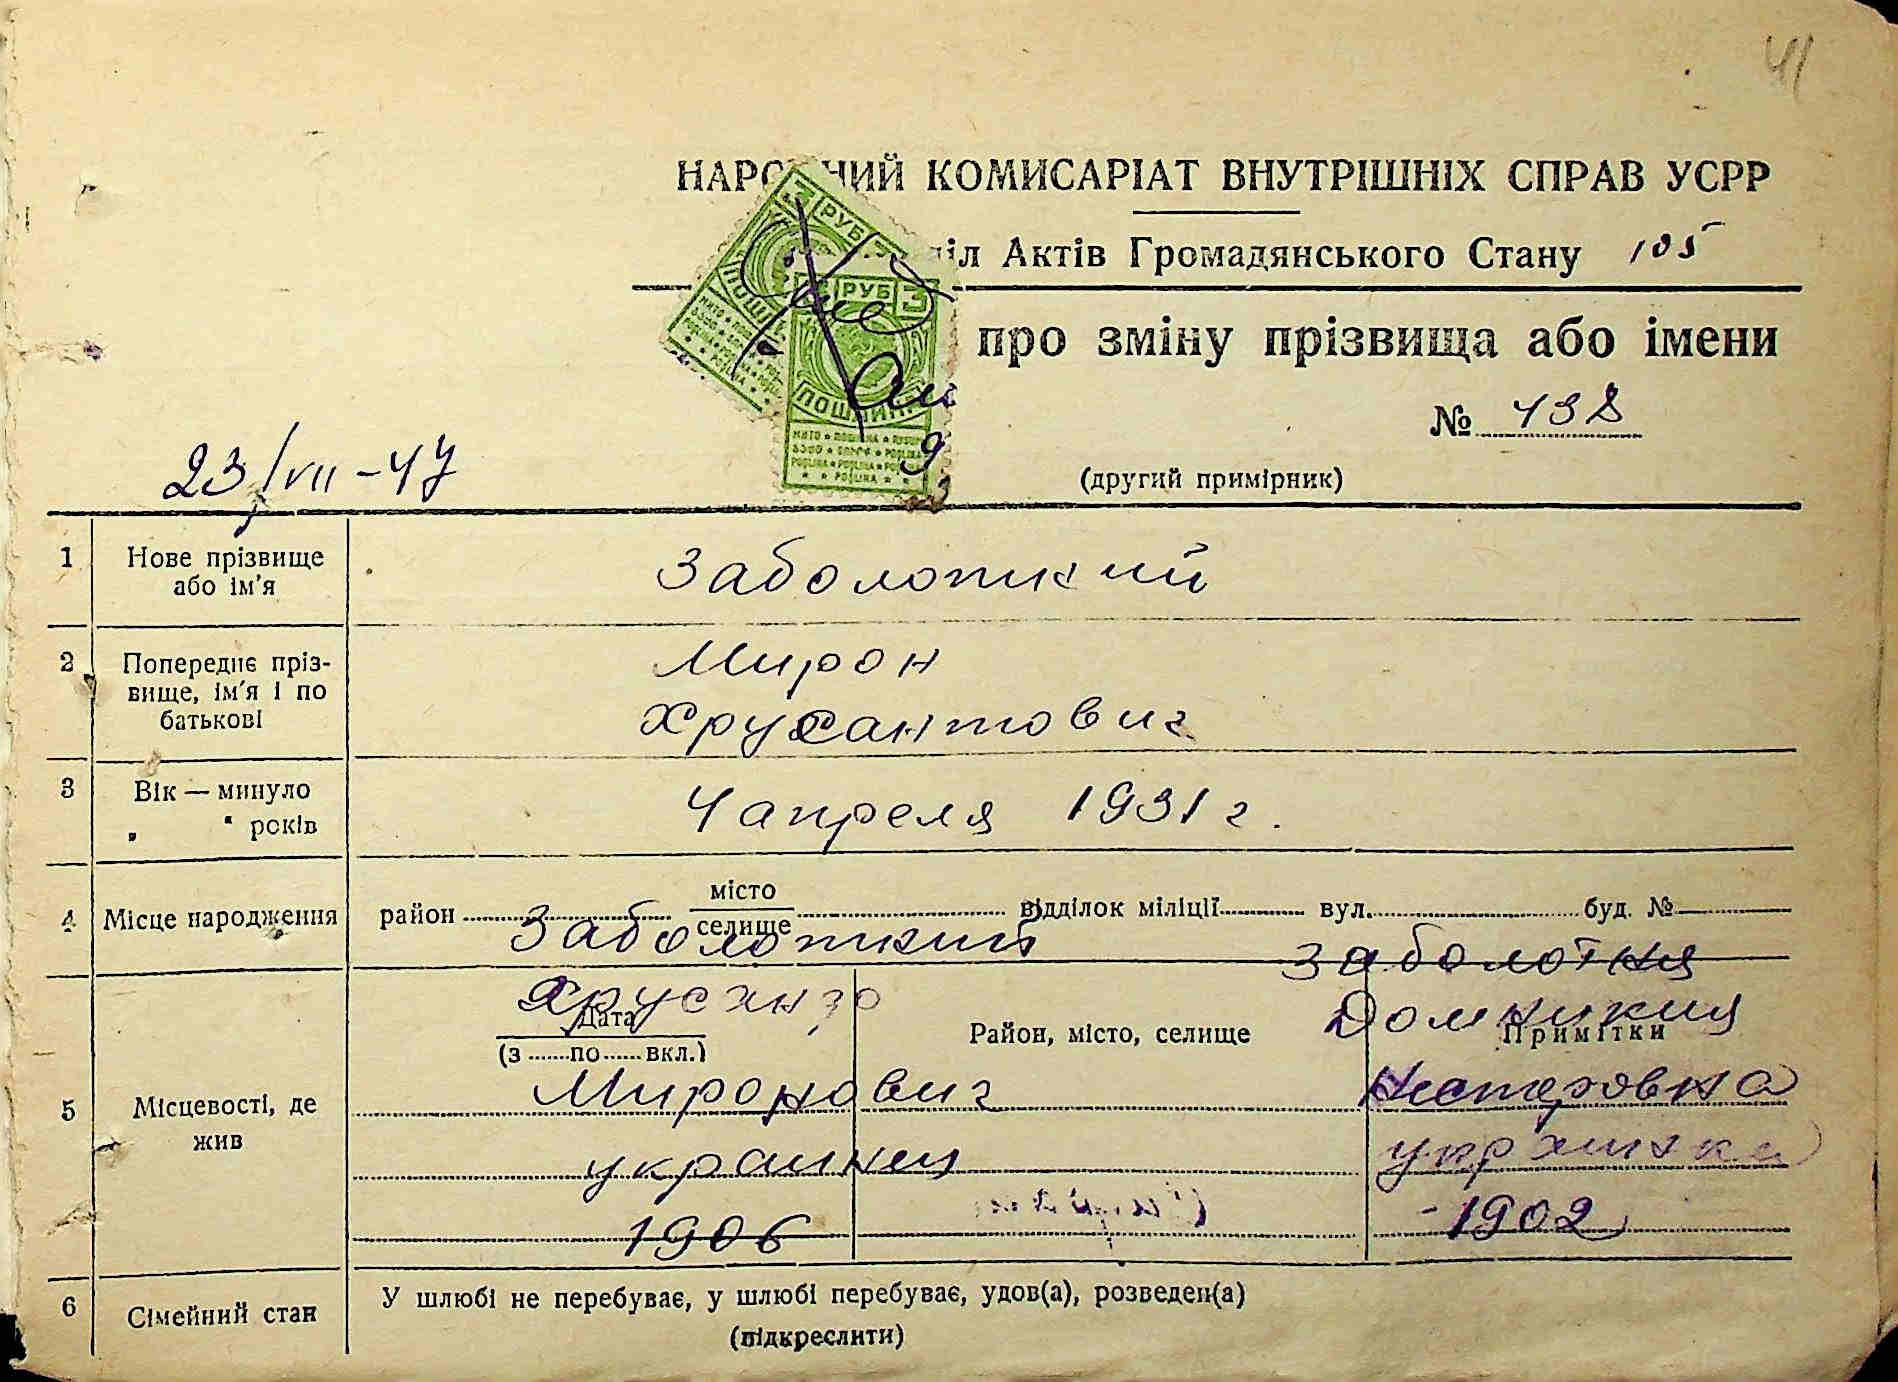 41
НАРОДНИЙ КОМИСАРІАТ ВНУТРІШНІХ СПРАВ УСРР
іл Актів Громадянського Стану 105
про зміну прізвища або імени
№ 132
(другий примірник)
23/VII-47
3 РУБ. 3
РУБ 3
ПОШЛИН
МИТО ★ ПОШЛИНА ★
1 Нове прізвище або ім'я
Заболоткий
2 Попереднє пріз-
вище, ім'я і по
батькові
Мирон
Хрусантович
3 Вік — минуло
„ " років
4 апреля 1931 г.
4 Місце народження район місто селище відділок міліції вул. буд. №
Заболоткий Заболотня
Хрусанто Домникия
Дата Район, місто, селище Примітки
(з ......по...... вкл.)
5 Місцевості, де
жив
Миронович Нестеровна
украинец украинка
1906 -1902
6 Сімейний стан
У шлюбі не перебуває, у шлюбі перебуває, удов(а), розведен(а)
(підкреслити)